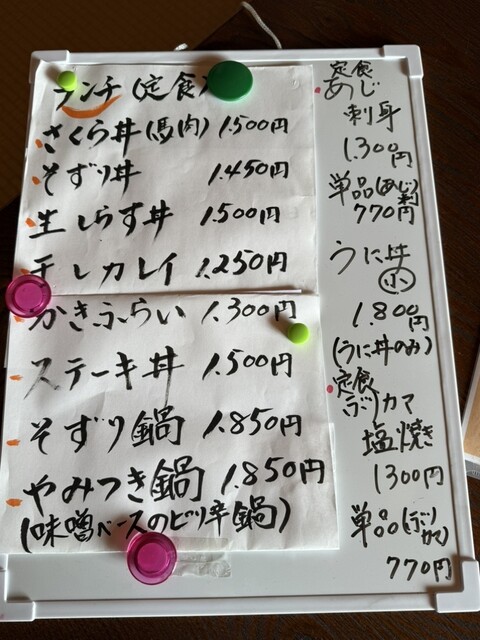 ランチ(定食)
さくら丼(馬肉) 1.500円
そずり丼 1.450円
生しらす丼 1.500円
干しカレイ 1.250円
かきふらい 1.300円
ステーキ丼 1.500円
そずり鍋 1.850円
やみつき鍋 1.850円
(味噌ベースのピリ辛鍋)
定食
あじ
刺身
1.300円
単品(あじ刺)
770円
うに丼
小
1.800円
(うに丼のみ)
定食
ブリカマ
塩焼き
1300円
単品(ブリカマ)
770円